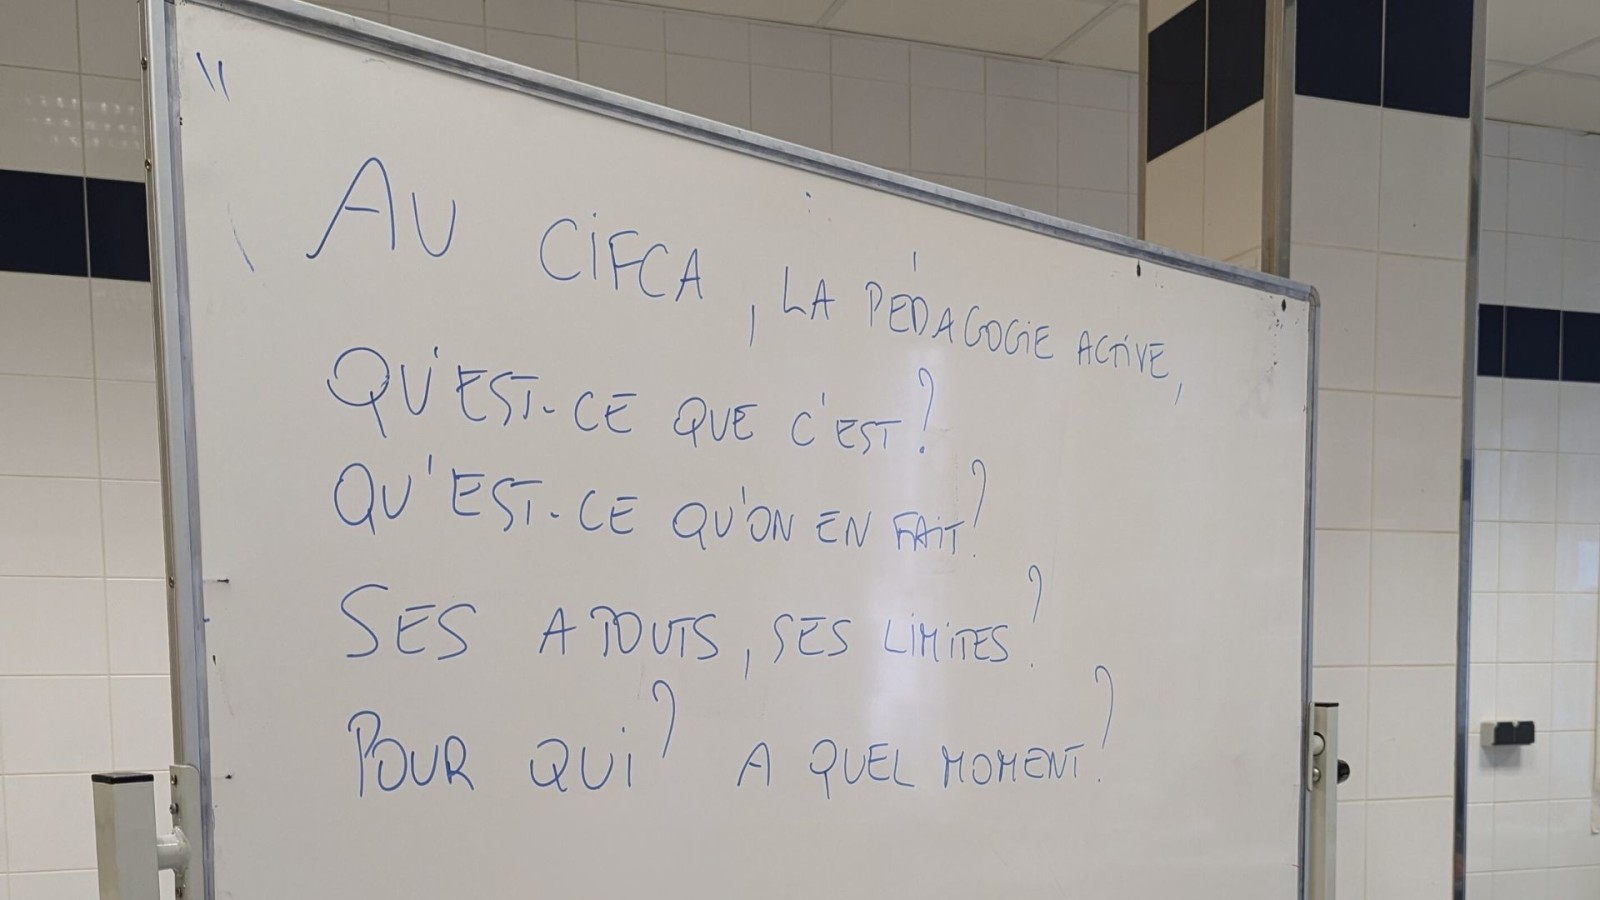 "
AU CIFCA, LA PÉDAGOGIE ACTIVE,
QU'EST-CE QUE C'EST?
QU'EST-CE QU'ON EN FAIT?
SES ATOUTS, SES LIMITES?
POUR QUI? A QUEL MOMENT?